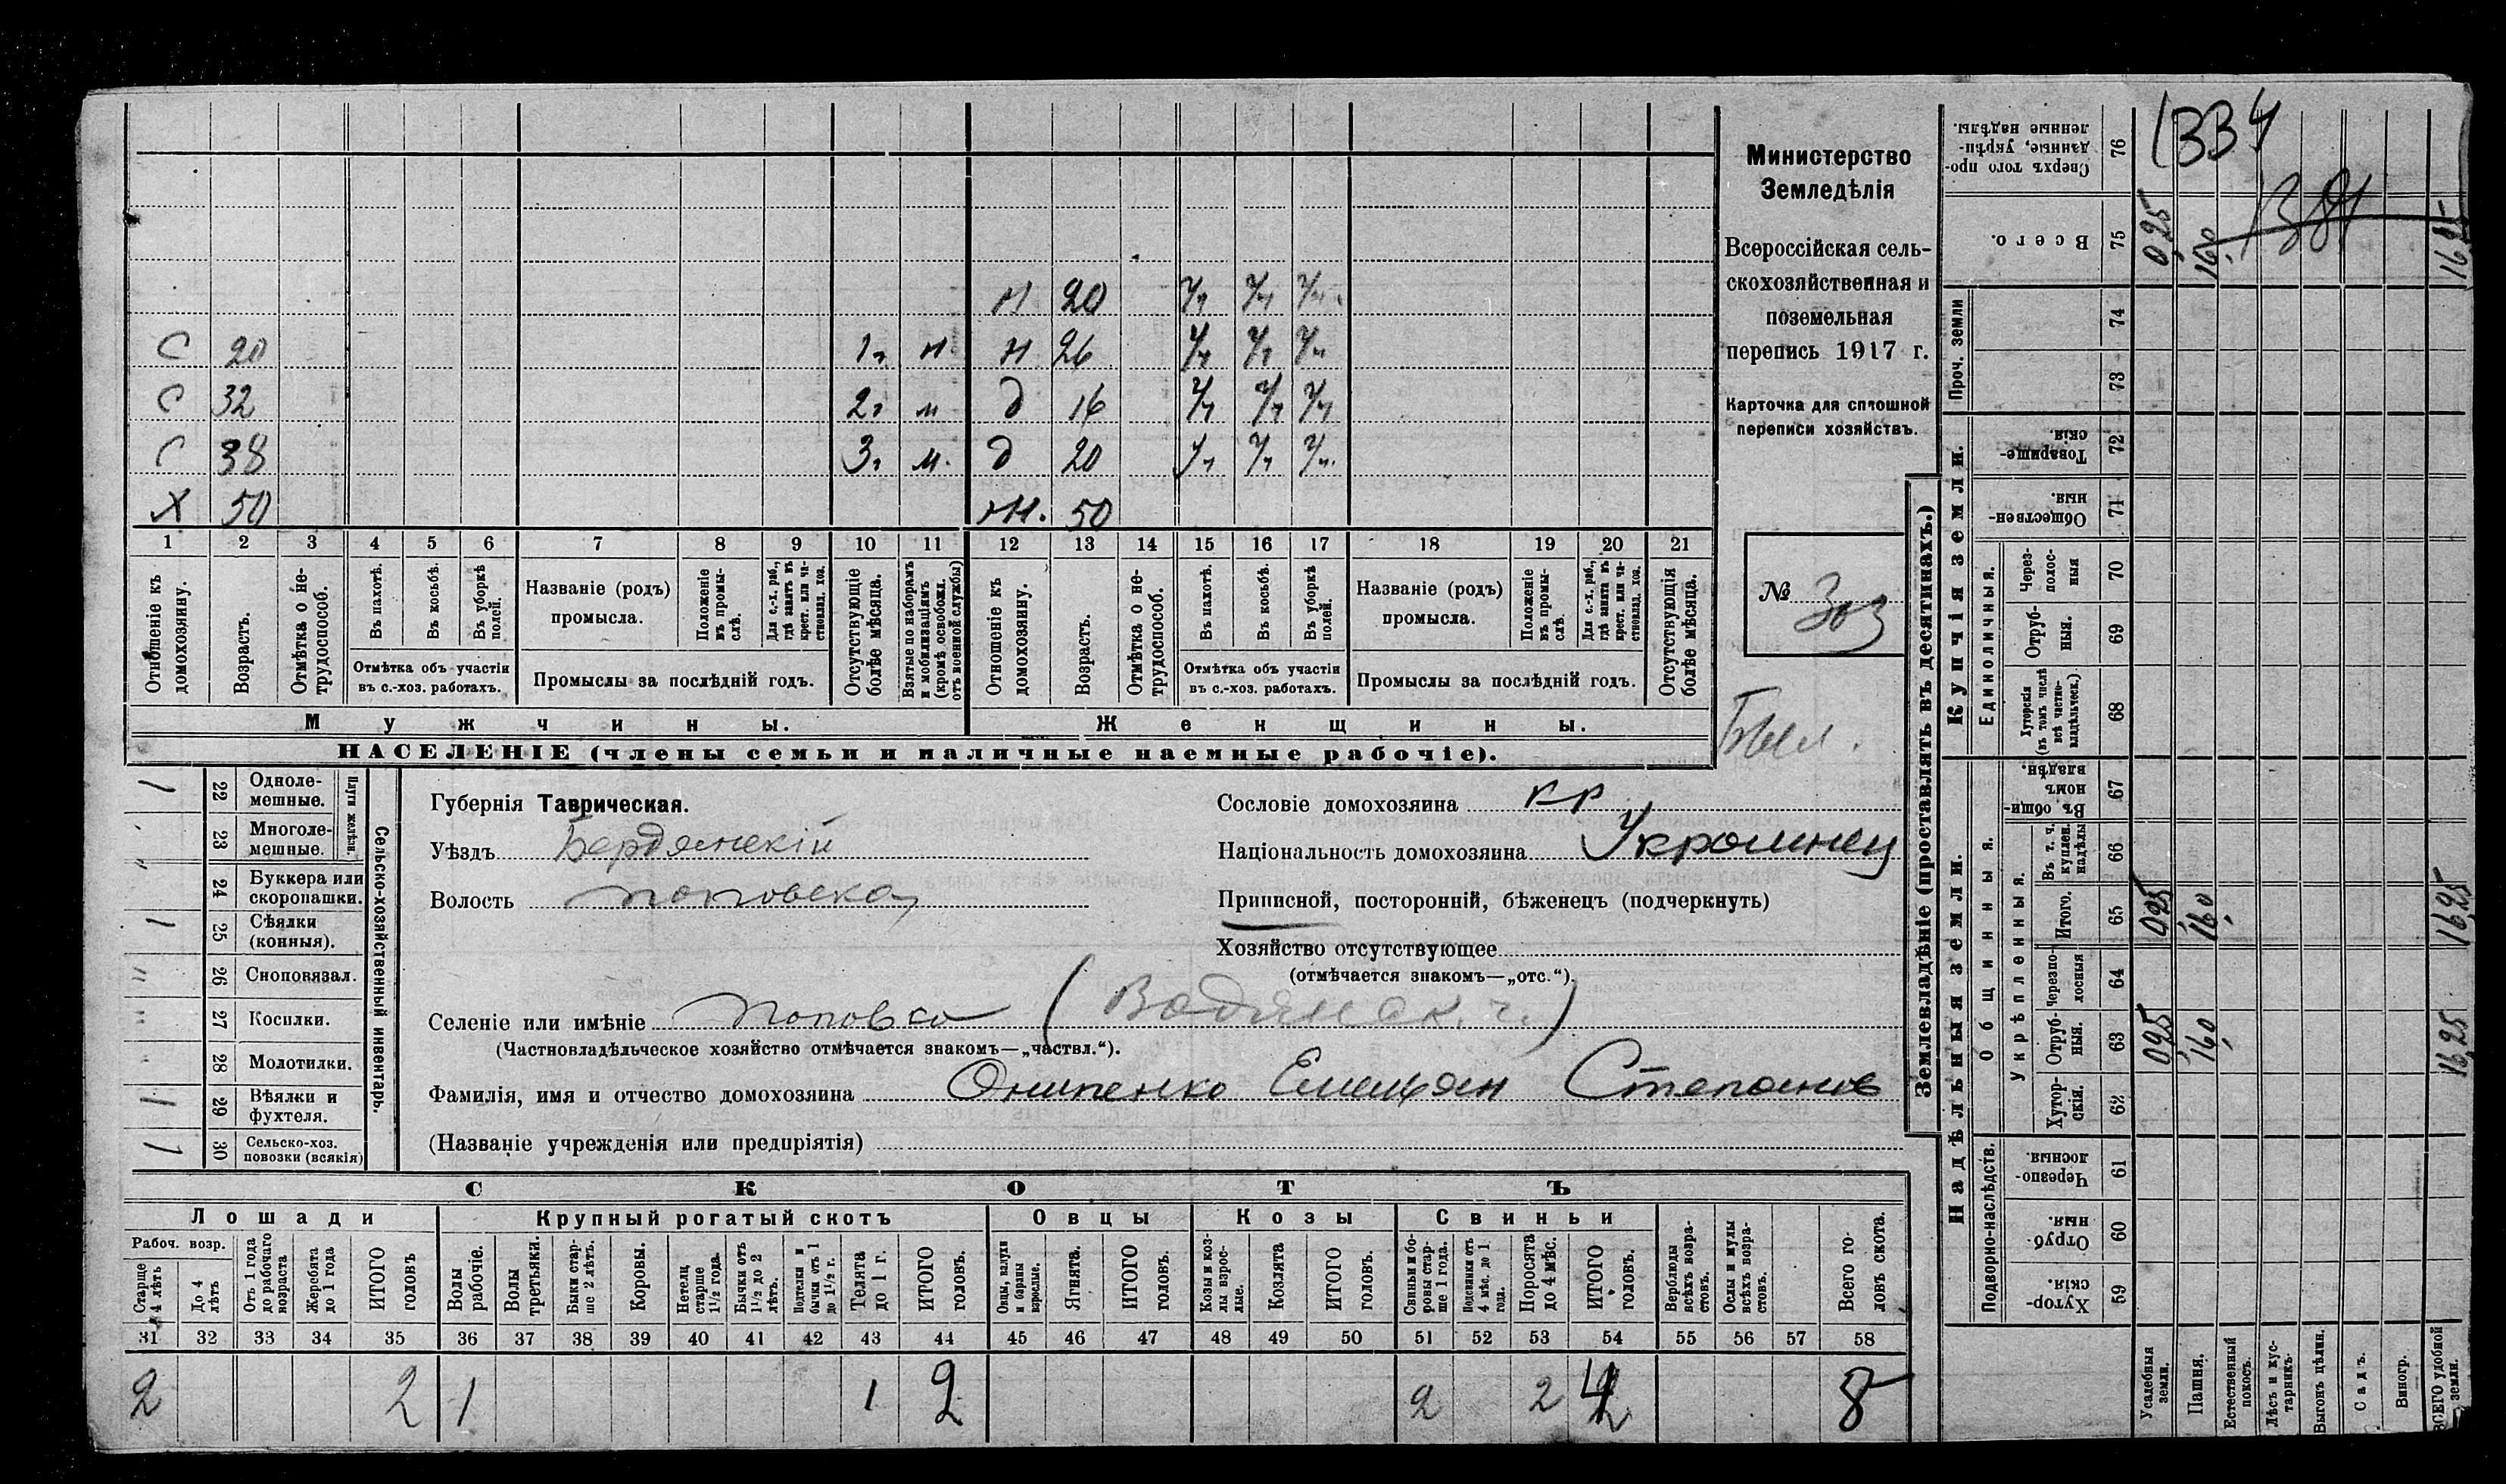 С 20 1 г н
С 32 2 г м
С 38 3 г м.
Х 50
Н 20 Уч Уч Уч.
Н 26 Уч Уч Уч
д 16 Уч Уч Уч
д 20 Уч Уч Уч.
Ж. 50
1 2 3 4 5 6 7 8 9 10 11 12 13 14 15 16 17 18 19 20 21
Отношеніе къ домохозяину.
Возрастъ.
Отмѣтка о не-
трудоспособ.
Въ пахотѣ.
Въ косьбѣ.
Въ уборкѣ
полей.
Отмѣтка объ участіи
въ с.-хоз. работахъ.
Названіе (родъ)
промысла.
Положеніе
въ промы-
слѣ.
Для с.-х. раб.,
гдѣ занятъ въ
крест. или ча-
стновлад. хоз.
Промыслы за послѣдній годъ.
Отсутствующіе
болѣе мѣсяца.
Взятые по наборамъ
и мобилизаціямъ
(кромѣ освобожд.
отъ военной службы)
Отношеніе къ
домохозяину.
Возрастъ.
Отмѣтка о не-
трудоспособ.
Въ пахотѣ.
Въ косьбѣ.
Въ уборкѣ
полей.
Отмѣтка объ участіи
въ с.-хоз. работахъ.
Названіе (родъ)
промысла.
Положеніе
въ промы-
слѣ.
Для с.-х. раб.,
гдѣ занята въ
крест. или ча-
стновлад. хоз.
Промыслы за послѣдній годъ.
Отсутствующія
болѣе мѣсяца.
Мужчины.
Женщины.
НАСЕЛЕНІЕ (члены семьи и наличные наемные рабочіе).
Министерство
Земледѣлія
Всероссійская сель-
скохозяйственная и
поземельная
перепись 1917 г.
Карточка для сплошной
переписи хозяйствъ.
№ 303
Сельско-хозяйственный инвентарь.
Плуги желѣзн.
1 22 Одноле-
мешные.
" 23 Многоле-
мешные.
24 Буккера или
скоропашки.
1 25 Сѣялки
(конныя).
" 26 Сноповязал.
" 27 Косилки.
" 28 Молотилки.
1 29 Вѣялки и
фухтеля.
1 30 Сельско-хоз.
повозки (всякія)
Губернія Таврическая.
Уѣздъ Бердянскій
Волость Поповская
Сословіе домохозяина кр
Національность домохозяина Украинец
Приписной, посторонній, бѣженецъ (подчеркнуть)
Хозяйство отсутствующее
(отмѣчается знакомъ—„отс.“).
Селеніе или имѣніе Поповка (Водянск. ч.)
(Частновладѣльческое хозяйство отмѣчается знакомъ—„частвл.“).
Фамилія, имя и отчество домохозяина Онипенко Емельян Степанов
(Названіе учрежденія или предпріятія)
СКОТЪ
Лошади
Рабоч. возр.
Старше
4 лѣтъ
До 4
лѣтъ
Отъ 1 года
до рабочаго
возраста
Жеребята
до 1 года
ИТОГО
головъ
Крупный рогатый скотъ
Волы
рабочіе.
Волы
третьяки.
Быки стар-
ше 2 лѣтъ.
Коровы.
Нетели
старше
1½ года.
Бычки отъ
1½ до 2
лѣтъ.
Подтелки и
бычки отъ 1
до 1½ г.
Телята
до 1 г.
ИТОГО
головъ.
Овцы
Овцы, валухи
и бараны
взрослые.
Ягнята.
ИТОГО
головъ.
Козы
Козы и коз-
лы взрос-
лые.
Козлята
ИТОГО
головъ.
Свиньи
Свиньи и бо-
ровы стар-
ше 1 года.
Подсвинки отъ
4 мѣс. до 1
года.
Поросята
до 4 мѣс.
ИТОГО
головъ.
Верблюды
всѣхъ возра-
стовъ.
Ослы и мулы
всѣхъ возра-
стовъ.
Всего го-
ловъ скота.
31 32 33 34 35 36 37 38 39 40 41 42 43 44 45 46 47 48 49 50 51 52 53 54 55 56 57 58
2 2 1 1 2 2 2 4 8
Землевладѣніе (проставлять въ десятинахъ.)
Купчія земли.
Надѣльныя земли.
Проч. земли
Сверхъ того про-
данные, укрѣп-
ленные надѣлы.
76
Всего.
75
74
73
Товарище-
скія.
72
Обществен-
ныя.
71
Единоличныя.
Через-
полос-
ныя
70
Отруб-
ныя.
69
Хуторскія
(въ томъ числѣ
всѣ частно-
владѣльческ.)
68
Общинныя.
Въ общин-
номъ
владѣн.
67
Укрѣпленныя.
Въ т. ч.
куплен.
надѣлы
66
Итого.
65
Черезпо-
лосныя
64
Отруб-
ныя.
63
Хутор-
скія.
62
Подворно-наслѣдств.
Черезпо-
лосныя
61
Отруб-
ныя.
60
Хутор-
скія.
59
Усадебныя
земли.
Пашня.
Естественный
покосъ.
Лѣсъ и кус-
тарникъ.
Выгонъ цѣлин.
Садъ.
Виногр.
ВСЕГО удобной
земли.
1334
0,25 16,0 16,25
0,25 16,0 16,25
0,25 16,0 16,25